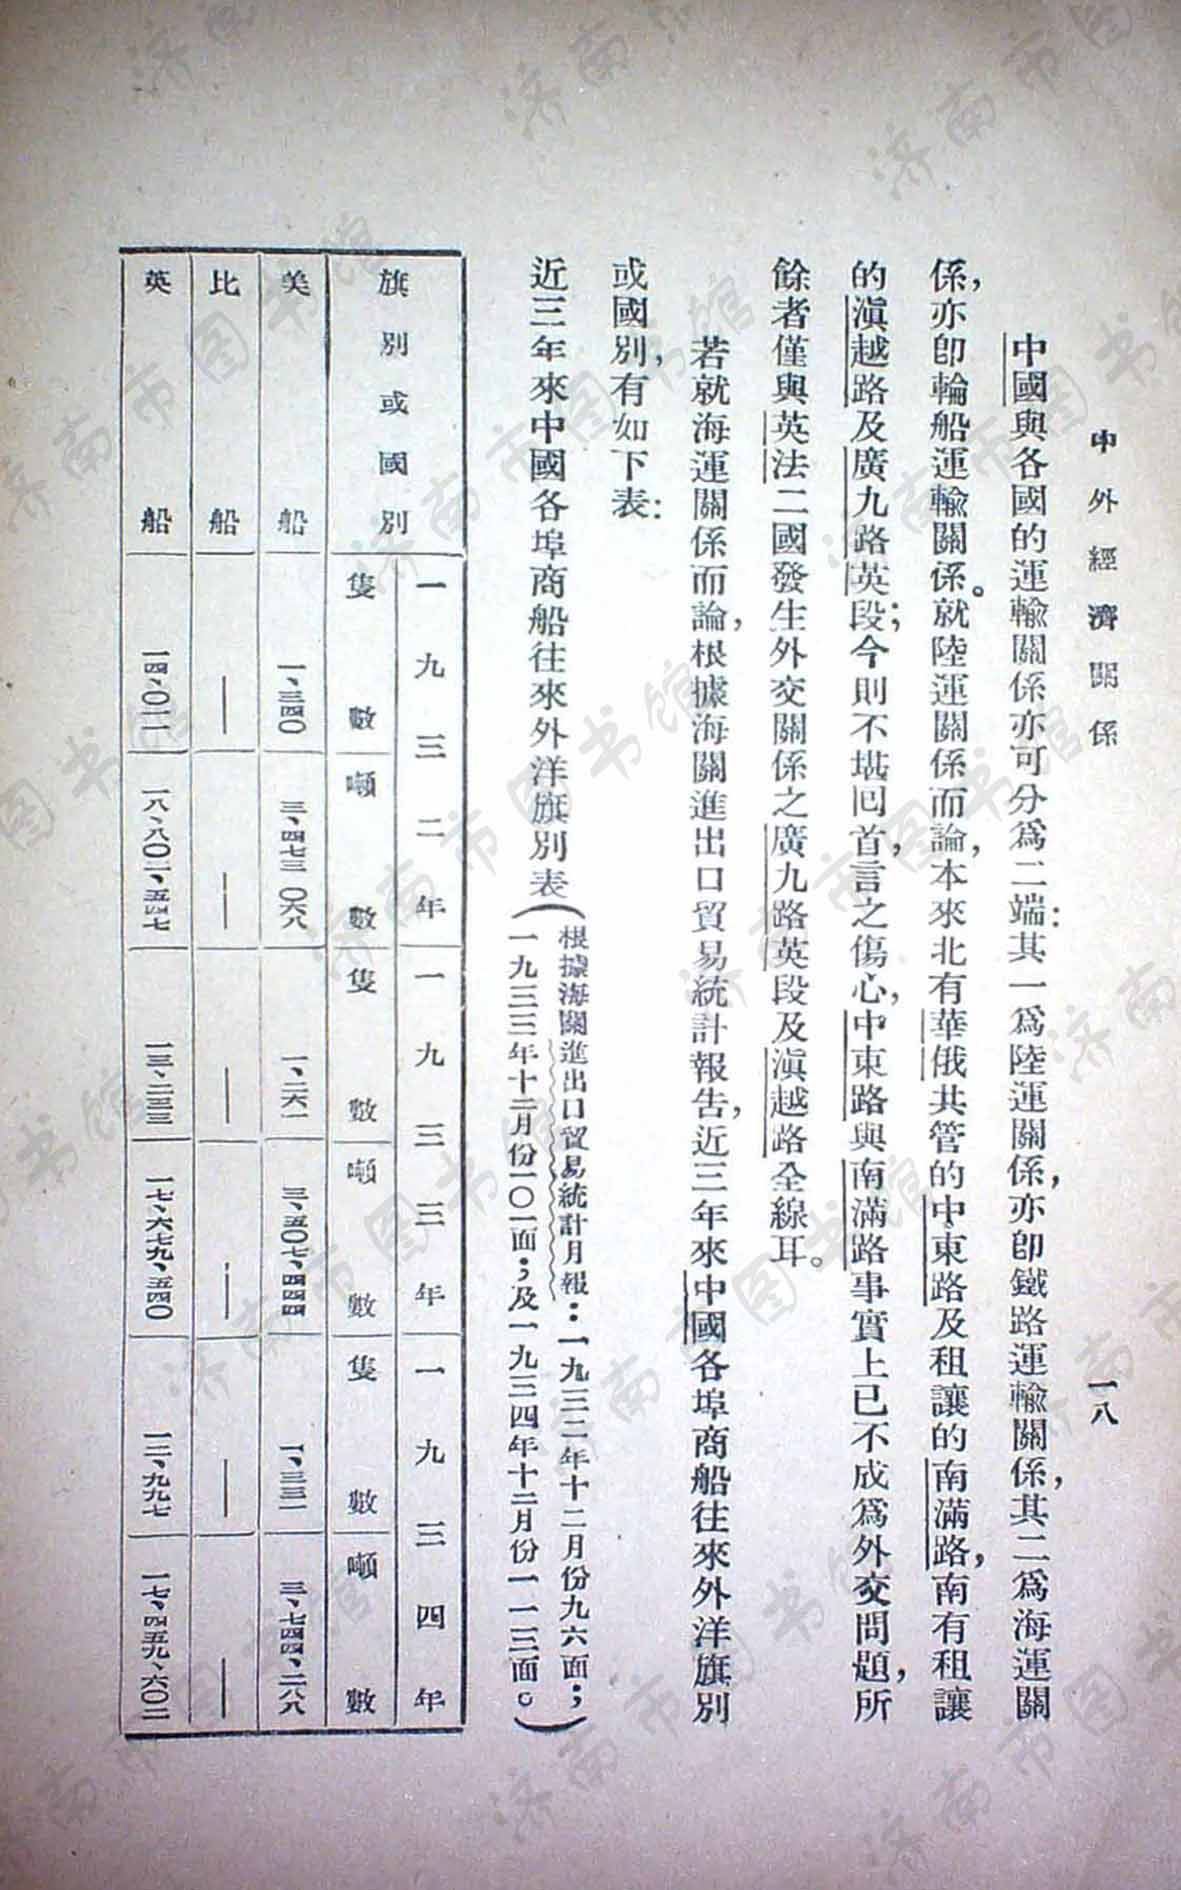 中外經濟關係
一八
中國與各國的運輸關係亦可分爲二端：其一爲陸運關係，亦卽鐵路運輸關係，其二爲海運關
係，亦卽輪船運輸關係。就陸運關係而論，本來北有華俄共管的中東路及租讓的南滿路，南有租讓
的滇越路及廣九路英段；今則不堪囘首，言之傷心，中東路與南滿路事實上已不成爲外交問題，所
餘者僅與英法二國發生外交關係之廣九路英段及滇越路全線耳。
若就海運關係而論，根據海關進出口貿易統計報告，近三年來中國各埠商船往來外洋旗別
或國別，有如下表：
近三年來中國各埠商船往來外洋旗別表（根據海關進出口貿易統計月報：一九三二年十二月份九六面；
一九三三年十二月份一〇一面；及一九三四年十二月份一一三面。）
旗別或國別 一九三二年 一九三三年 一九三四年
隻數 噸數 隻數 噸數 隻數 噸數
美船 一、三四〇 三、四七三 〇六八 一、二六一 三、五〇七、四四四 一、三三一 三、七四四、二八八
比船 — — — — — —
英船 一四、〇一一 一八、八〇一、五四七 一三、二三三 一七、六七九、五四〇 一二、九九七 一七、四五九、六〇二
济南市图书馆